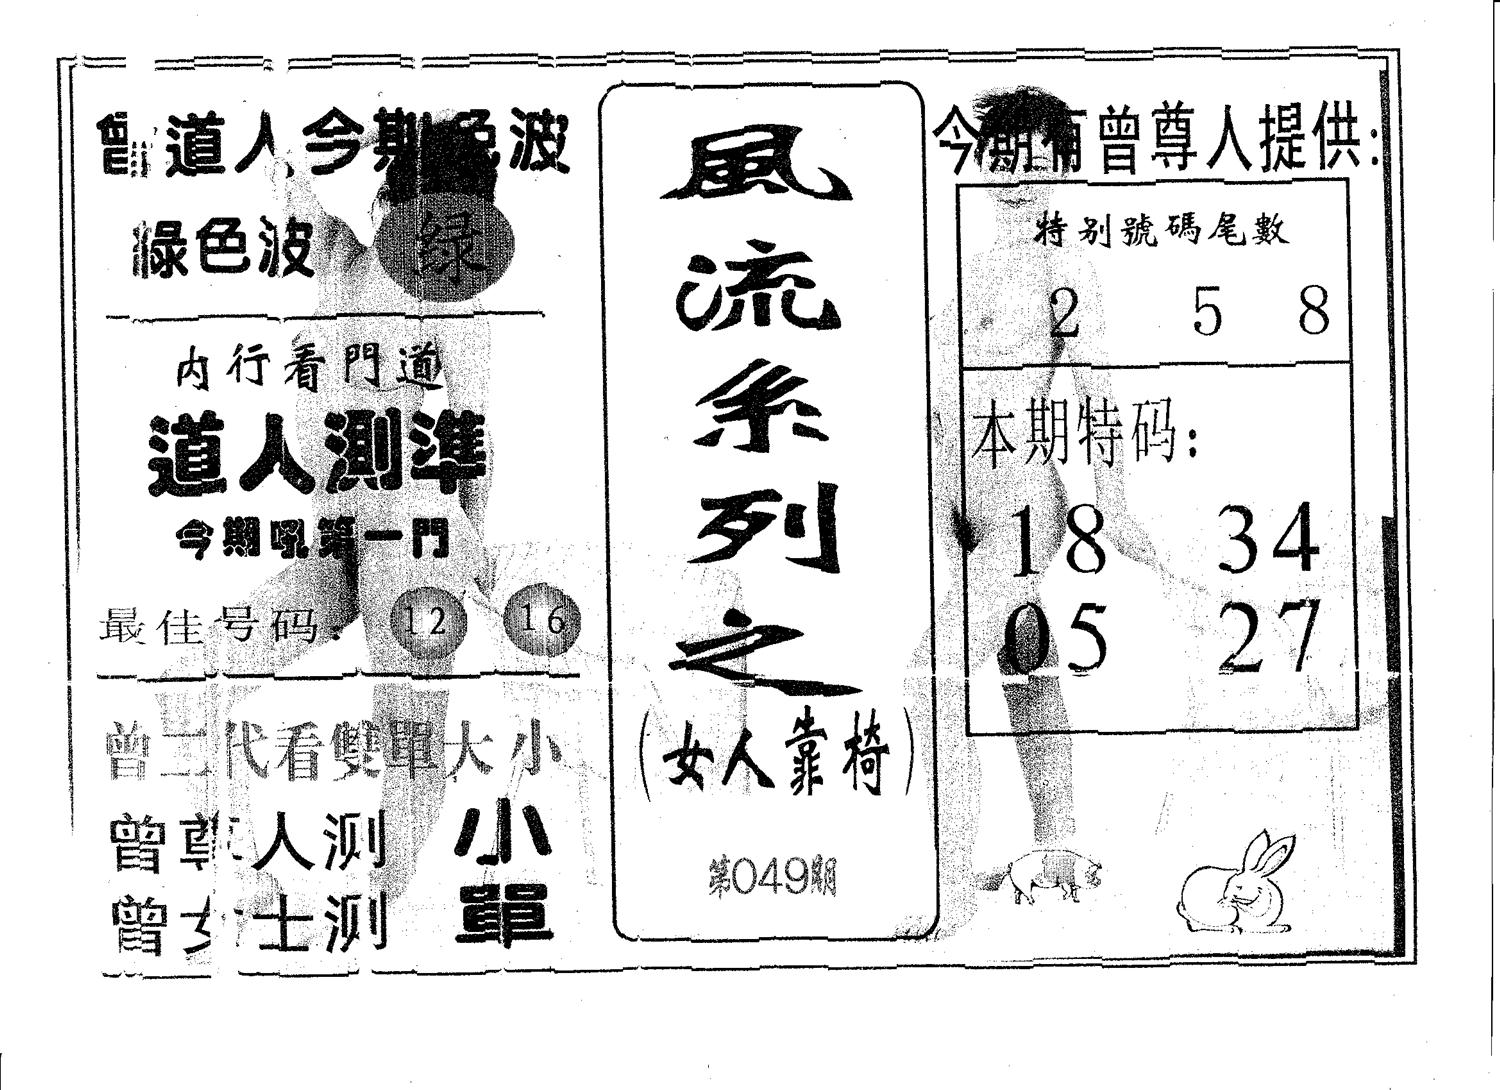 曾道人今期色波
綠色波
绿
内行看門道
道人測準
今期吼第一門
最佳号码：
12
16
曾二代看雙單大小
曾尊人测
小
曾女士测
單
風流系列之
（女人靠椅）
第049期
今期有曾尊人提供：
特别號碼尾數
2 5 8
本期特码：
18 34
05 27